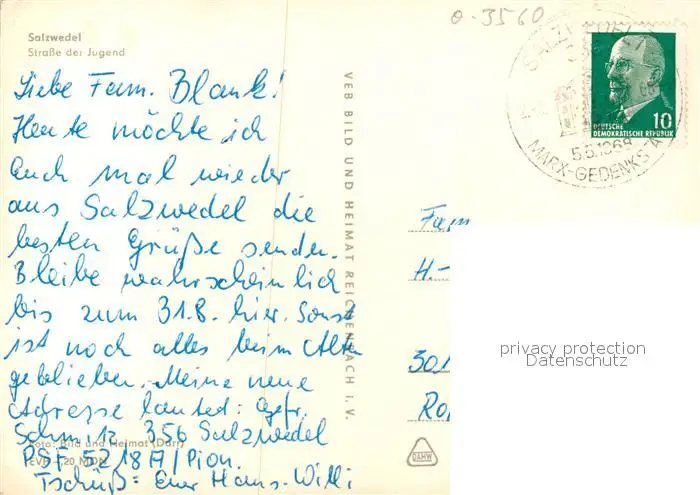 Salzwedel
Straße der Jugend
o-3560
Liebe Fam. Blank!
Heute möchte ich
Euch mal wieder
aus Salzwedel die
besten Grüße senden.
Bleibe wahrscheinlich
bis zum 31.8. hier. Sonst
ist noch alles beim Alten
geblieben. Meine neue
Adresse lautet: Gefr.
356 Salzwedel
PSF 5218 A/Pion.
Tschüß: Euer Hans-Willi
Foto: Bild und Heimat (Darr)
EVP -,20 MDN
VEB BILD UND HEIMAT REICHENBACH I. V.
SALZWEDEL 1
5.5.1968
MARX-GEDENKS
10
DEUTSCHE
DEMOKRATISCHE REPUBLIK
Fam
H.-
301
DAHW
privacy protection
Datenschutz